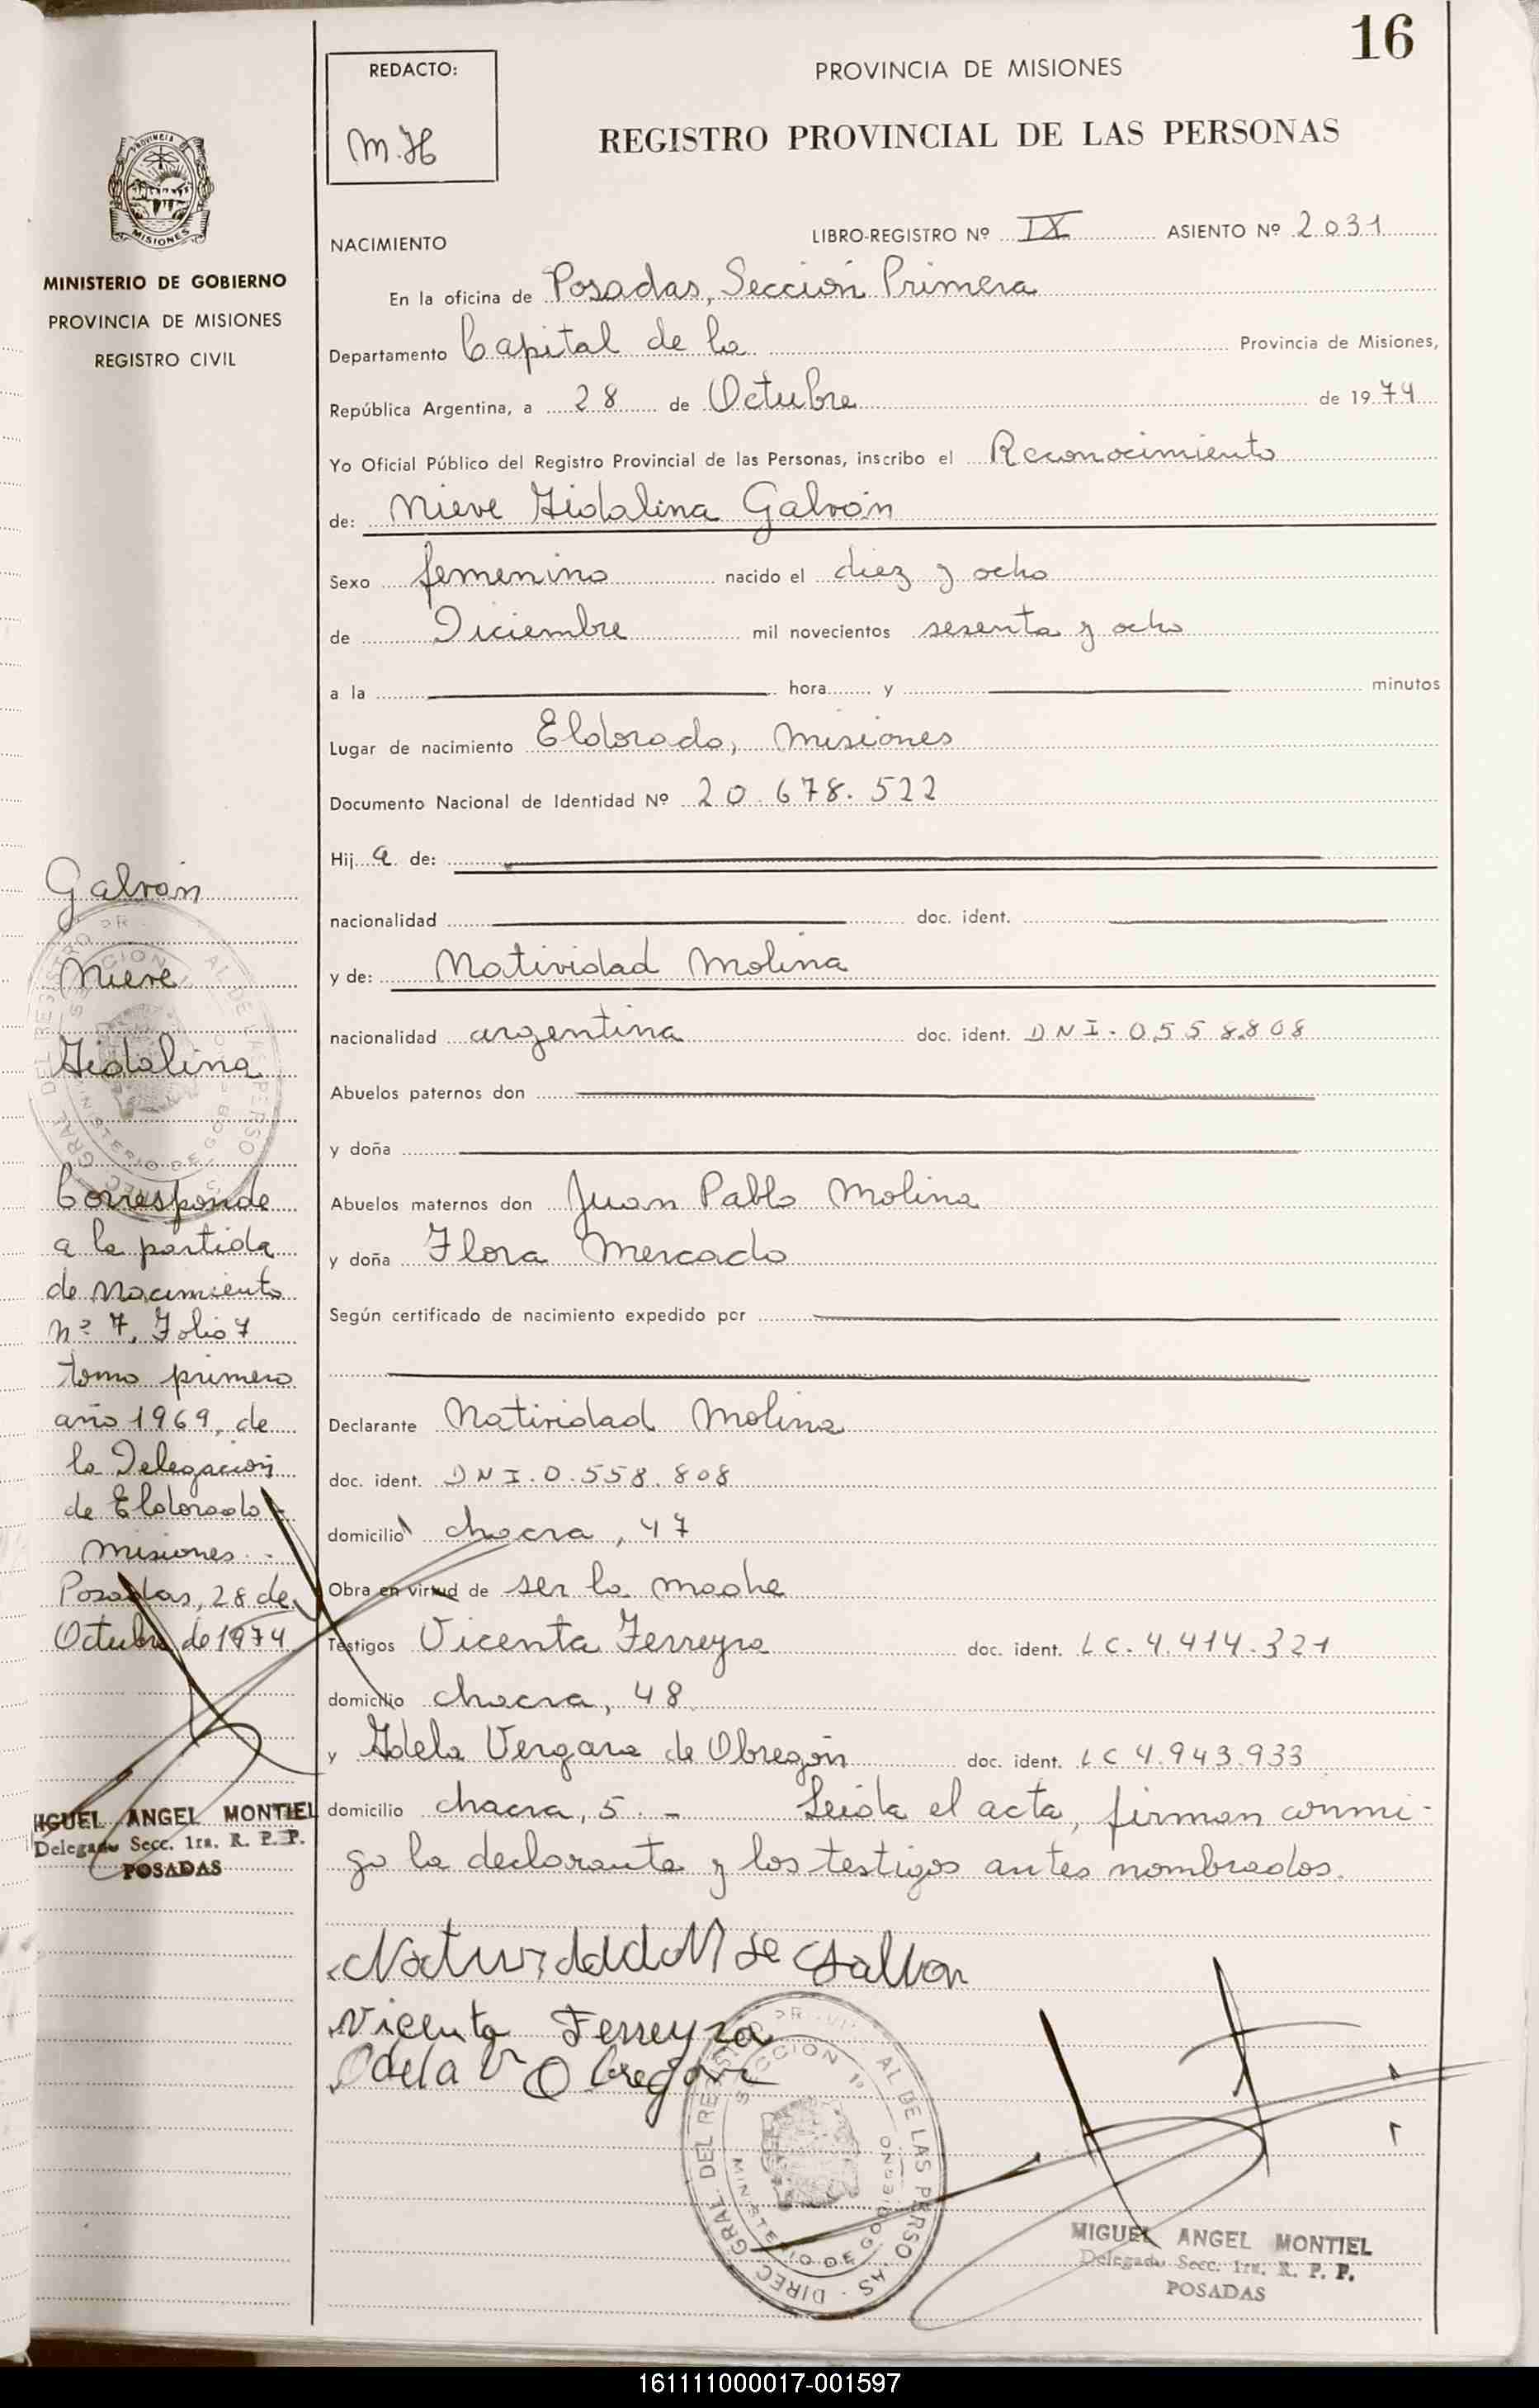 16
REDACTO:
M.H
PROVINCIA DE MISIONES
REGISTRO PROVINCIAL DE LAS PERSONAS
PROVINCIA
MISIONES
MINISTERIO DE GOBIERNO
PROVINCIA DE MISIONES
REGISTRO CIVIL
NACIMIENTO
LIBRO-REGISTRO Nº IX ASIENTO Nº 2031
En la oficina de Posadas, Sección Primera
Departamento Capital de la Provincia de Misiones,
República Argentina, a 28 de Octubre de 1974
Yo Oficial Público del Registro Provincial de las Personas, inscribo el Reconocimiento
de: Nieve Hidalina Galván
Sexo femenino nacido el diez y ocho
de Diciembre mil novecientos sesenta y ocho
a la hora y minutos
Lugar de nacimiento Eldorado, Misiones
Documento Nacional de Identidad Nº 20.678.522
Hija de:
nacionalidad doc. ident.
y de: Natividad Molina
nacionalidad argentina doc. ident. DNI-0558.808
Abuelos paternos don
y doña
Abuelos maternos don Juan Pablo Molina
y doña Flora Mercado
Según certificado de nacimiento expedido por
Declarante Natividad Molina
doc. ident. DNI.0.558.808
domicilio chacra, 47
Obra en virtud de ser la madre
Testigos Vicenta Ferreyra doc. ident. LC.4.414.321
domicilio chacra, 48
y Adela Vergara de Obregón doc. ident. LC 4.943.933
domicilio chacra, 5.- Leida el acta, firman conmi-
go la declarante y los testigos antes nombrados.
Natividad M de Galvan
Vicenta Ferreyra
Odela V Obregon
DIREC. GRAL. DEL REGISTRO PR AL DE LAS PERSO AS
SECCION 1ª
MINISTERIO DE GOBIERNO
MIGUEL ANGEL MONTIEL
Delegado Secc. 1ra. R. P. P.
POSADAS
Galván
Nieve
Hidalina
Corresponde
a la partida
de Nacimiento
nº 7, Folio 7
tomo primero
año 1969, de
la Delegación
de Eldorado-
Misiones.-
Posadas, 28 de
Octubre de 1974
IGUEL ANGEL MONTIEL
Delegado Secc. 1ra. R. P. P.
POSADAS
161111000017-001597